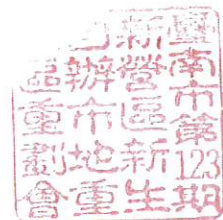 臺南市第123期
新營區新生
自辦市地重
區重劃會